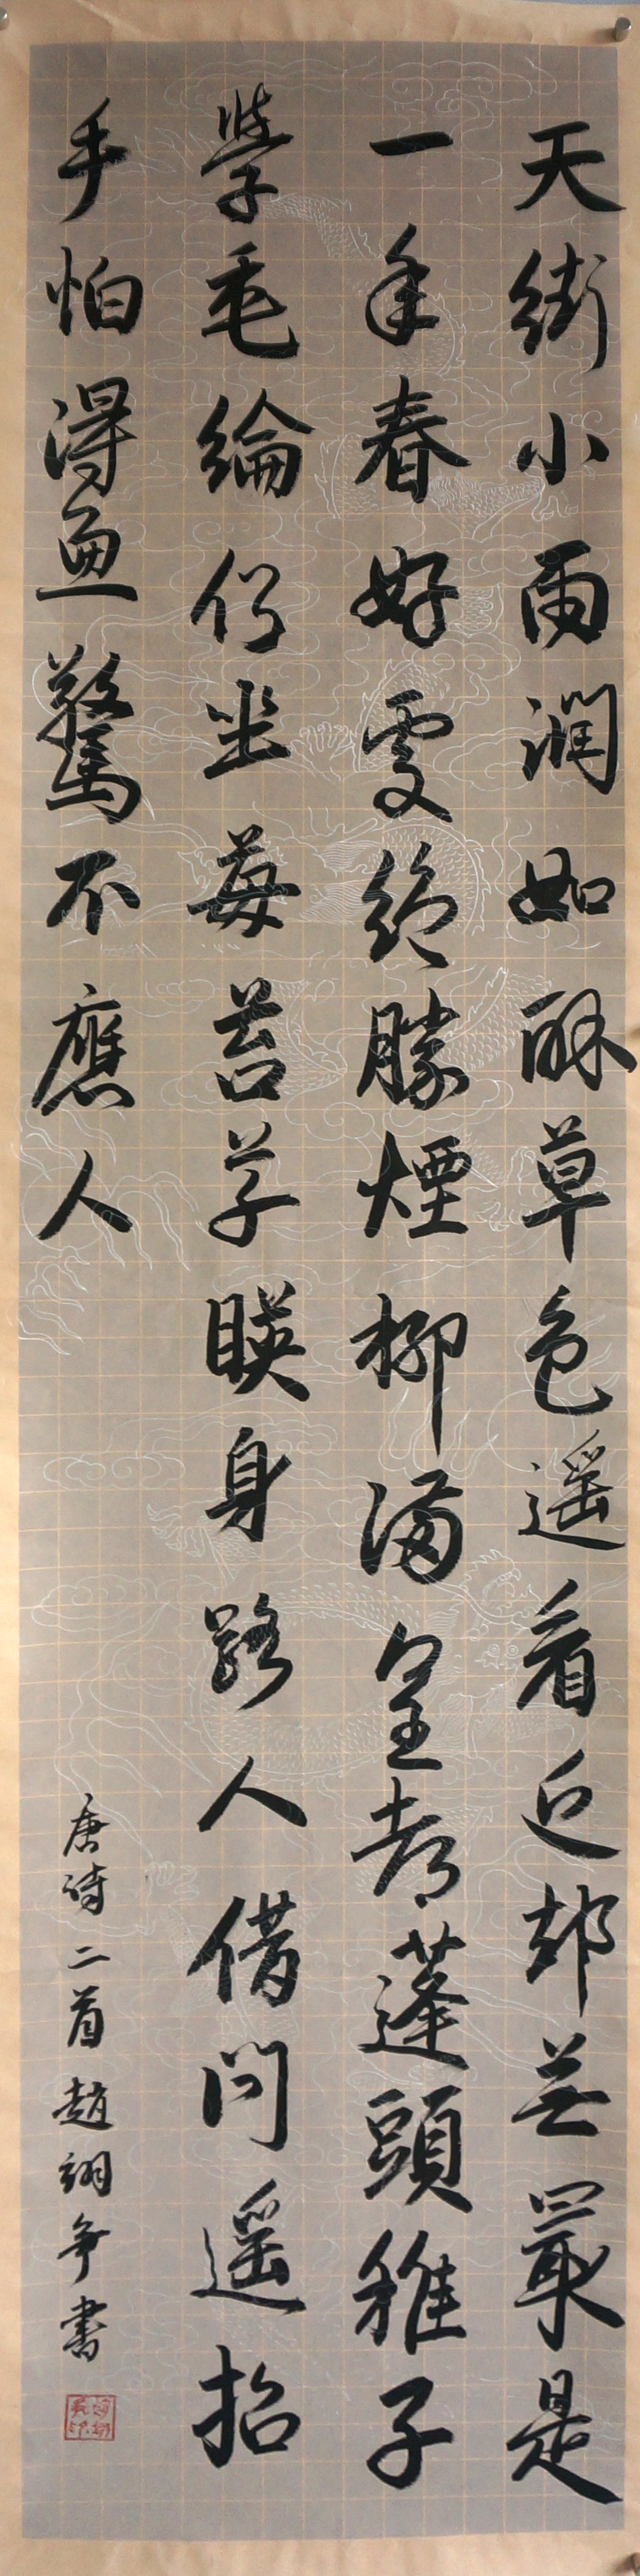 天街小雨潤如酥草色遥看近却無最是
一年春好處絶勝煙柳滿皇都蓬頭稚子
學垂綸側坐莓苔草暎身路人借問遥招
手怕得魚驚不應人
唐詩二首趙翊爭書